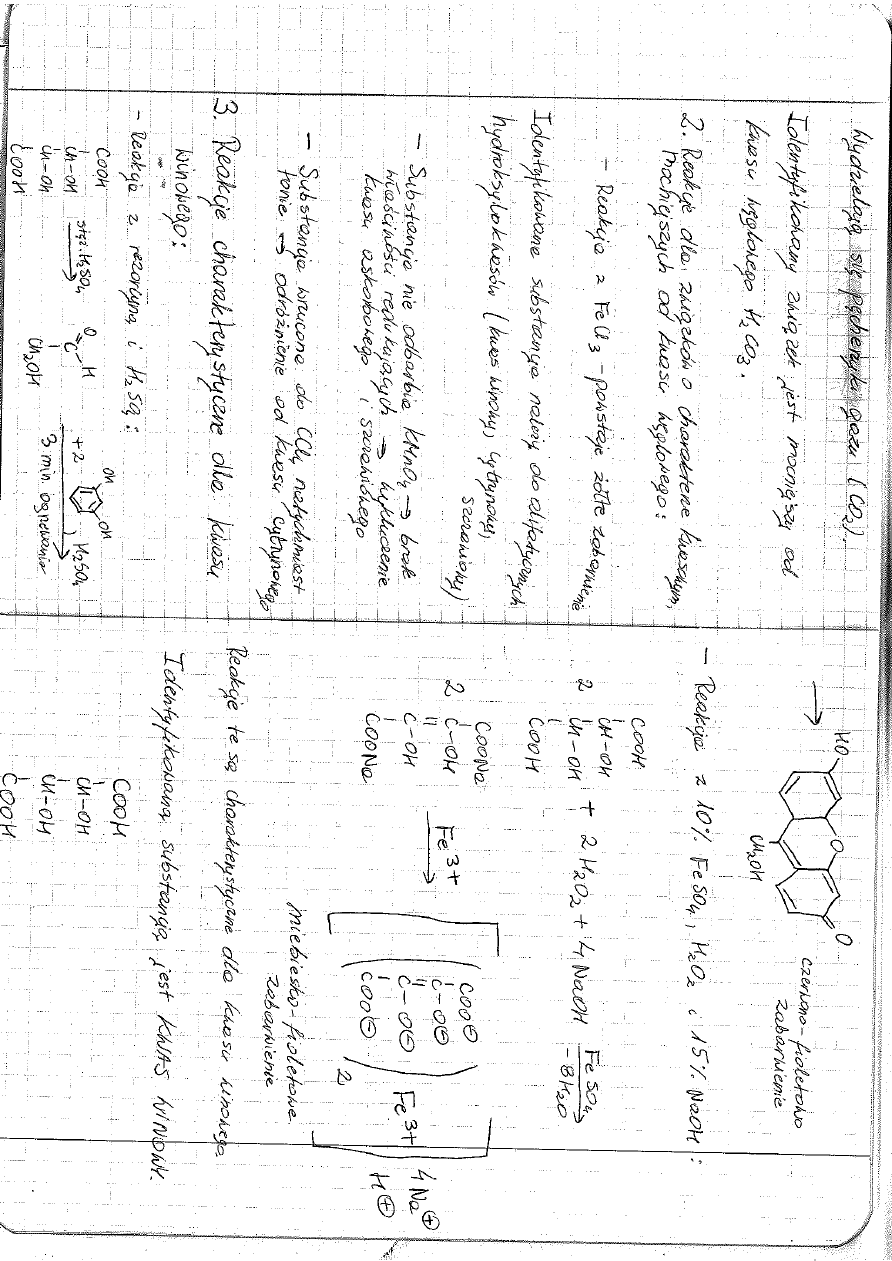 Wydzielają się pęcherzyki gazu (CO₂).
Identyfikowany związek jest mocniejszy od
kwasu węglowego H₂CO₃.
2. Reakcje dla związków o charakterze kwasowym,
mocniejszych od kwasu węglowego:
- Reakcja z FeCl₃ - powstaje żółte zabarwienie
Identyfikowana substancja należy do alifatycznych
hydroksylokwasów (kwas winowy, cytrynowy,
szczawiowy)
- Substancja nie odbarwia KMnO₄ → brak
właściwości redukujących → wykluczenie
kwasu askorbowego i szczawiowego
- Substancja wrzucona do CCl₄ natychmiast
tonie → odróżnienie od kwasu cytrynowego
3. Reakcje charakterystyczne dla kwasu
winowego:
- Reakcja z rezorcyną i H₂SO₄:
COOH
CH-OH
CH-OH
COOH
stęż. H₂SO₄
O
C
H
CH₂OH
+2
OH
OH
, H₂SO₄
3 min. ogrzewania
→
HO
O
O
CH₂OH
czerwono-fioletowo
zabarwienie
- Reakcja z 10% FeSO₄, H₂O₂ i 15% NaOH:
COOH
CH-OH
2 CH-OH + 2H₂O₂ + 4NaOH
COOH
FeSO₄
-8H₂O
COONa
2 C-OH
C-OH
COONa
Fe³⁺
COO⊖
C-O⊖
C-O⊖
COO⊖
2
Fe³⁺
4Na⊕
H⊕
niebiesko-fioletowe
zabarwienie
Reakcje te są charakterystyczne dla kwasu winowego
Identyfikowaną substancją jest KWAS WINOWY.
COOH
CH-OH
CH-OH
COOH